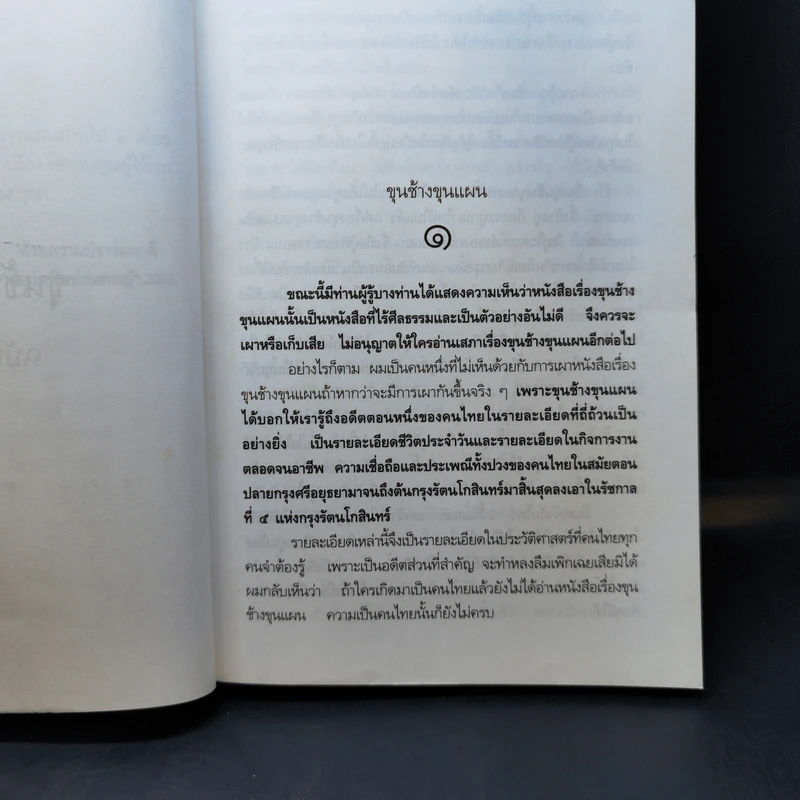 ขุนช้างขุนแผน
๑
ขณะนี้มีท่านผู้รู้บางท่านได้แสดงความเห็นว่าหนังสือเรื่องขุนช้าง
ขุนแผนนั้นเป็นหนังสือที่ไร้ศีลธรรมและเป็นตัวอย่างอันไม่ดี จึงควรจะ
เผาหรือเก็บเสีย ไม่อนุญาตให้ใครอ่านเสภาเรื่องขุนช้างขุนแผนอีกต่อไป
อย่างไรก็ตาม ผมเป็นคนหนึ่งที่ไม่เห็นด้วยกับการเผาหนังสือเรื่อง
ขุนช้างขุนแผนถ้าหากว่าจะมีการเผากันขึ้นจริง ๆ เพราะขุนช้างขุนแผน
ได้บอกให้เรารู้ถึงอดีตตอนหนึ่งของคนไทยในรายละเอียดที่ถี่ถ้วนเป็น
อย่างยิ่ง เป็นรายละเอียดชีวิตประจำวันและรายละเอียดในกิจการงาน
ตลอดจนอาชีพ ความเชื่อถือและประเพณีทั้งปวงของคนไทยในสมัยตอน
ปลายกรุงศรีอยุธยามาจนถึงต้นกรุงรัตนโกสินทร์มาสิ้นสุดลงเอาในรัชกาล
ที่ ๕ แห่งกรุงรัตนโกสินทร์
รายละเอียดเหล่านี้จึงเป็นรายละเอียดในประวัติศาสตร์ที่คนไทยทุก
คนจำต้องรู้ เพราะเป็นอดีตส่วนที่สำคัญ จะทำหลงลืมเพิกเฉยเสียมิได้
ผมกลับเห็นว่า ถ้าใครเกิดมาเป็นคนไทยแล้วยังไม่ได้อ่านหนังสือเรื่องขุน
ช้างขุนแผน ความเป็นคนไทยนั้นก็ยังไม่ครบ